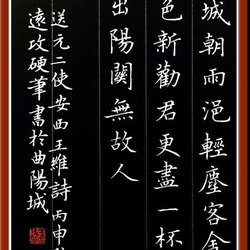 城朝雨浥輕塵客舍
色新勸君更盡一杯
出陽關無故人
送元二使安西王維詩丙申
遠攻硬筆書於曲陽城